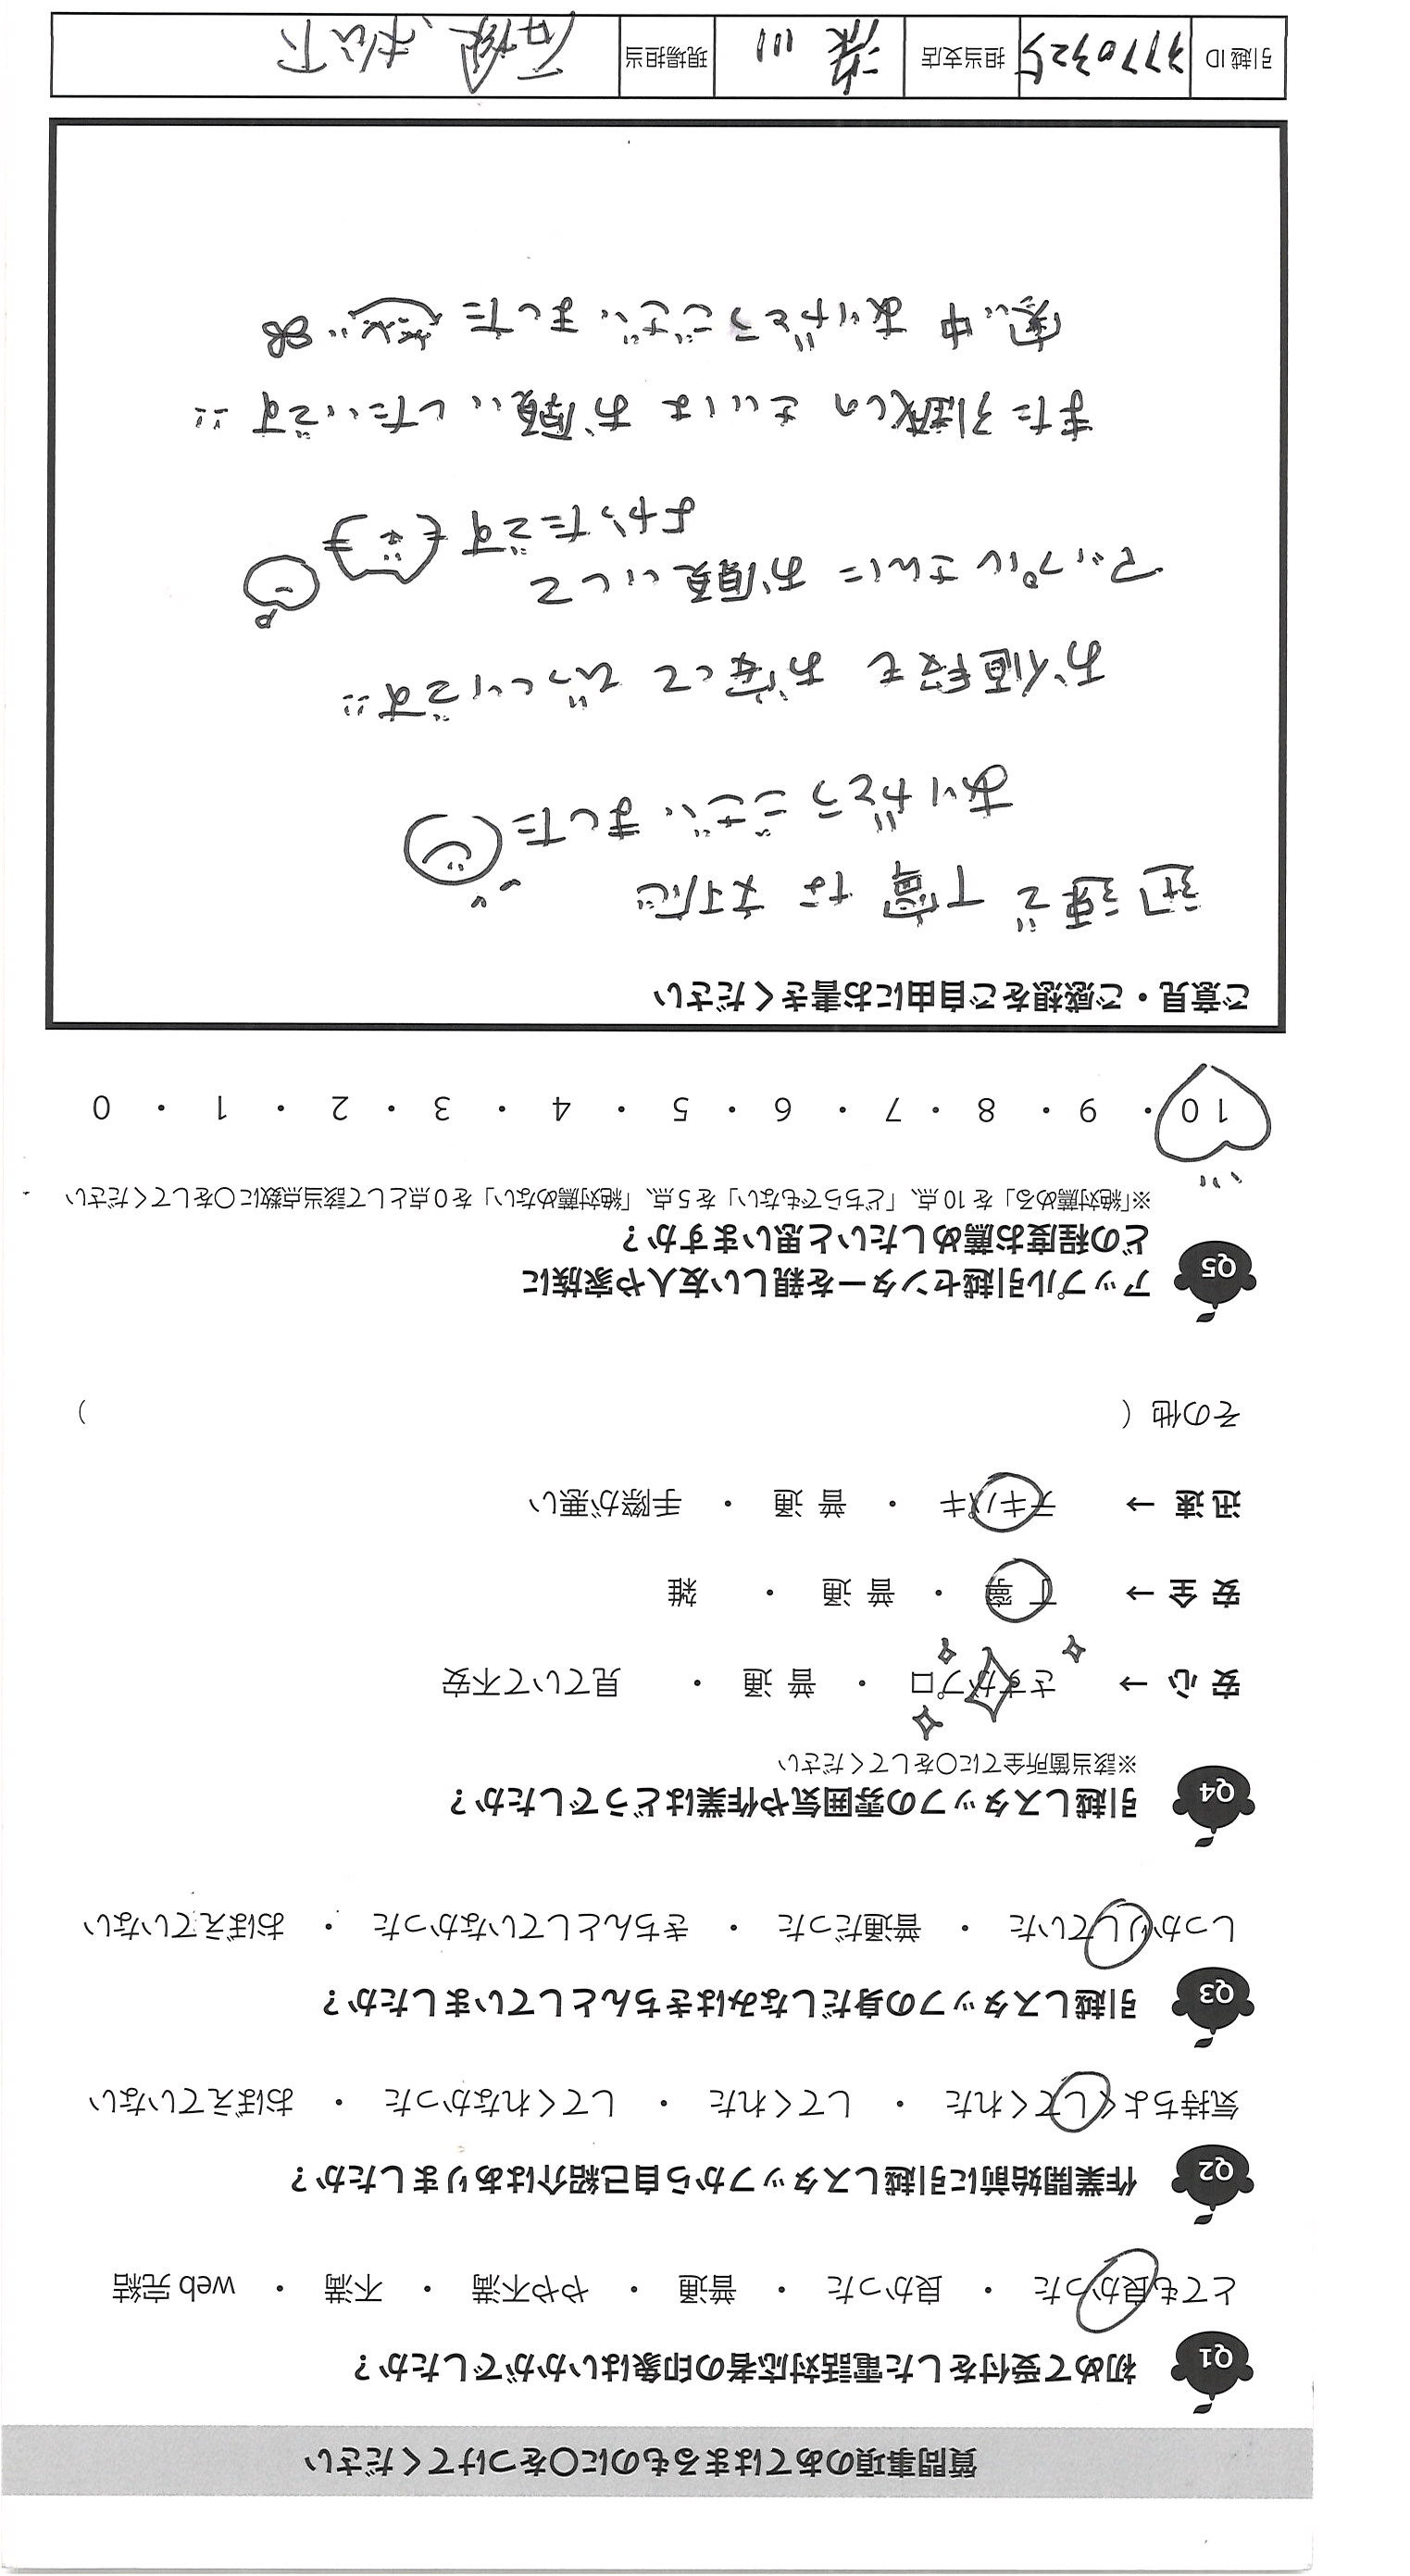 質問事項のあてはまるものに〇をつけてください
Q1 初めて受付をした電話対応者の印象はいかがでしたか？
とても良かった ・ 良かった ・ 普通 ・ やや不満 ・ 不満 ・ web 完結
Q2 作業開始前に引越しスタッフから自己紹介はありましたか？
気持ちよくしてくれた ・ してくれた ・ してくれなかった ・ おぼえていない
Q3 引越しスタッフの身だしなみはきちんとしていましたか？
しっかりしていた ・ 普通だった ・ きちんとしていなかった ・ おぼえていない
Q4 引越しスタッフの雰囲気や作業はどうでしたか？
※該当箇所全てに〇をしてください
安心 → さすがプロ ・ 普通 ・ 見ていて不安
安全 → 丁寧 ・ 普通 ・ 雑
迅速 → テキパキ ・ 普通 ・ 手際が悪い
その他（ ）
Q5 アップル引越センターを親しい友人や家族に
どの程度お薦めしたいと思いますか？
※「絶対薦める」を 10 点、「どちらでもない」を 5 点、「絶対薦めない」を 0 点として該当点数に〇をしてください
10 ・ 9 ・ 8 ・ 7 ・ 6 ・ 5 ・ 4 ・ 3 ・ 2 ・ 1 ・ 0
ご意見・ご感想をご自由にお書きください
迅速で丁寧な対応
ありがとうございました
お値段もお安くてびっくりです!!
アップルさんにお願いして
よかったです
また引越しのさいはお願いしたいです!!
寒い中ありがとうございました
引越 ID 3770325 担当支店 現場担当 石榑、松下